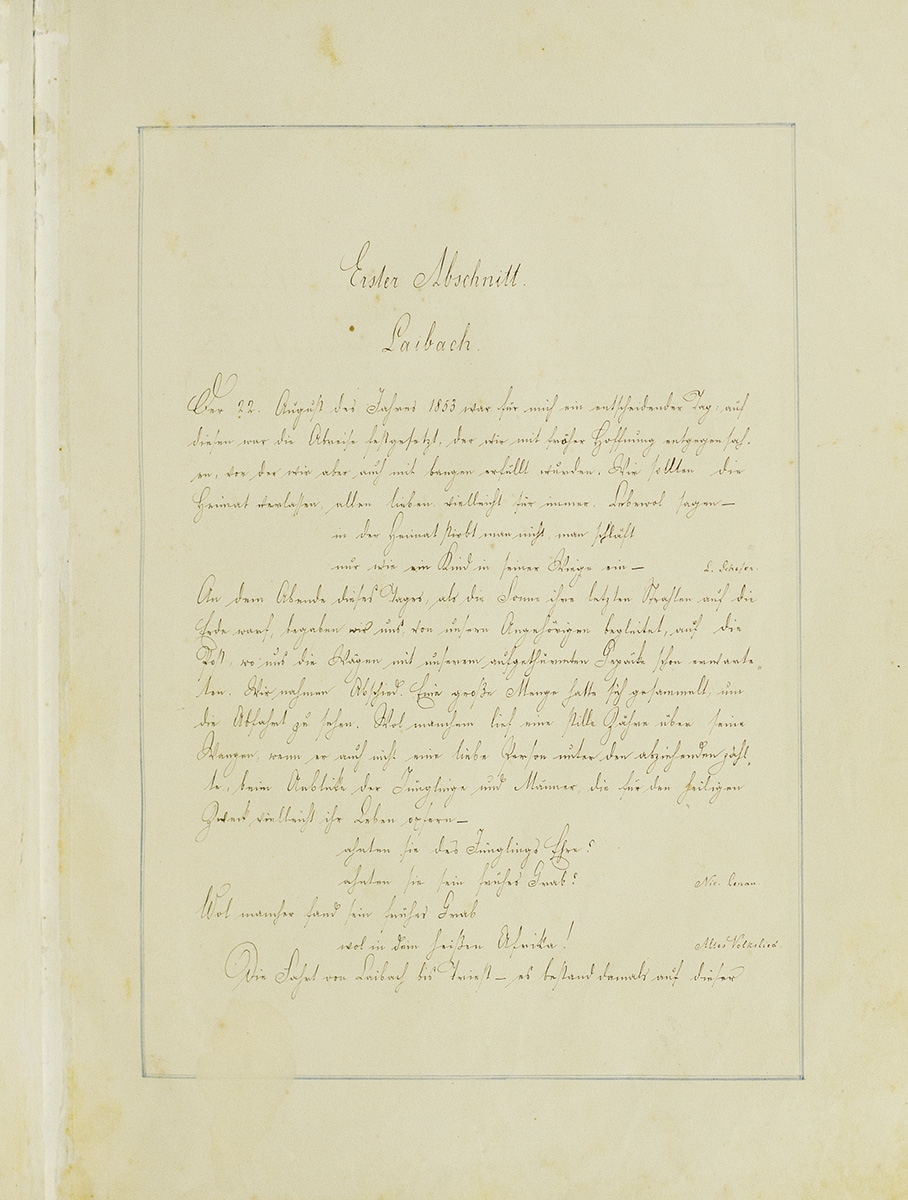 Erster Abschnitt.
Laibach.
Der 22. August des Jahres 1853 war für mich ein entscheidender Tag; auf
diesen war die Abreise festgesetzt, der wir mit froher Hoffnung entgegensah-
en, vor der wir aber auch mit bangen erfüllt wurden. Wir sollten die
Heimat verlassen, allen lieben vielleicht für immer Lebewol sagen —
in der Heimat stirbt man nicht, man schläft
nur wie ein Kind in seiner Wiege ein — L. Schefer.
An dem Abende dieses Tages, als die Sonne ihre letzten Strahlen auf die
Erde warf, begaben wir uns, von unsern Angehörigen begleitet, auf die
Post, wo uns die Wägen mit unserem aufgethürmten Gepäcke schon erwarte-
ten. Wir nahmen Abschied. Eine große Menge hatte sich gesammelt, um
die Abfahrt zu sehen. Wol manchem lief eine stille Zähre über seine
Wangen, wenn er auch nicht eine liebe Person unter den abziehenden zähl-
te, beim Anblicke der Jünglinge und Männer, die für den heiligen
Zweck vielleicht ihr Leben opfern —
ahnten sie des Jünglings Ehre?
ahnten sie sein frühes Grab? Nic. Lenau
Wol mancher fand sein frühes Grab
wol in dem heißen Afrika! Altes Volkslied.
Die Fahrt von Laibach bis Triest — es bestand damals auf dieser